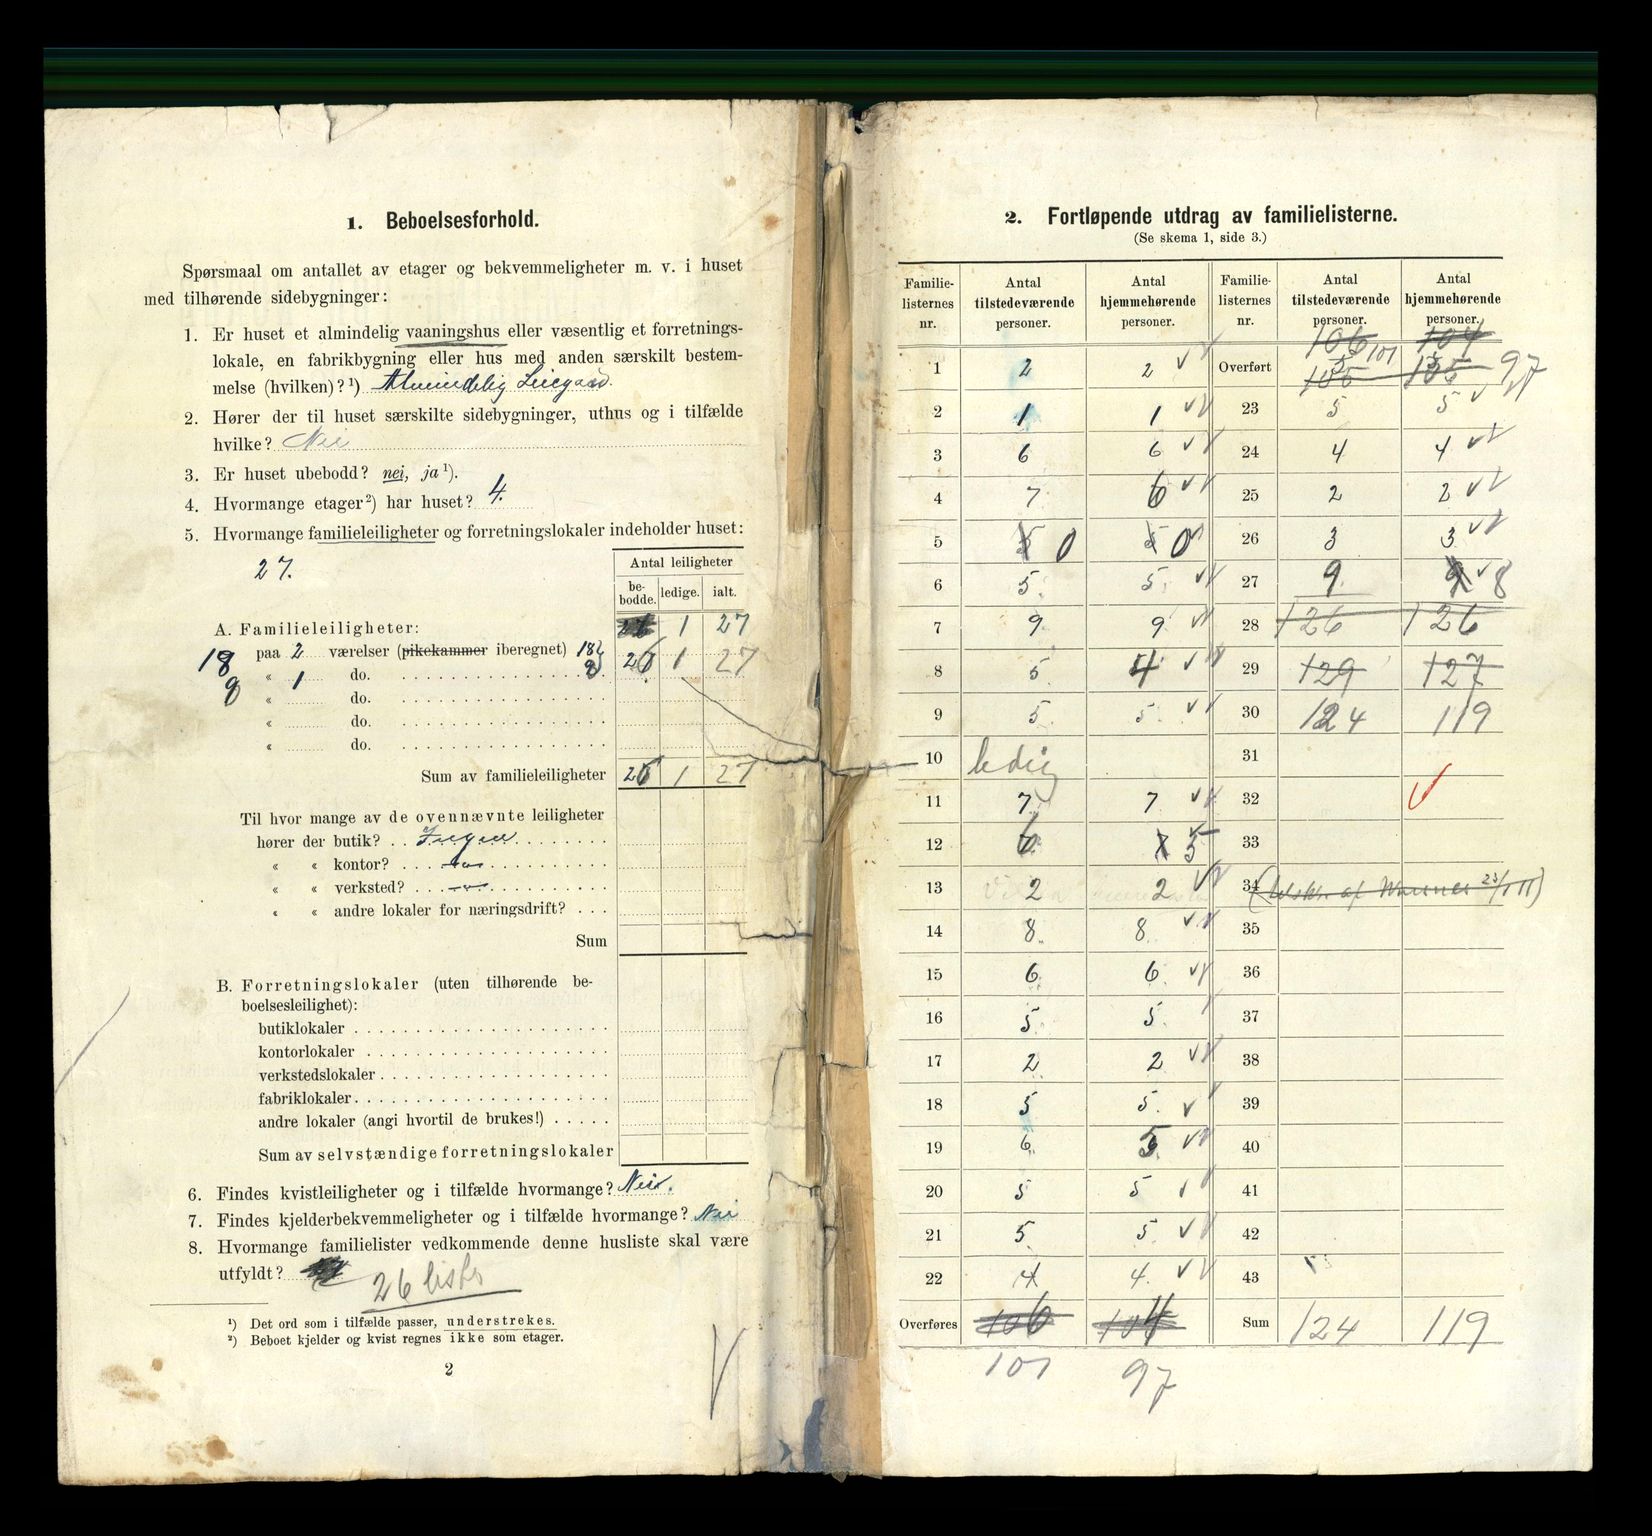 1. Beboelsesforhold.
Spørsmaal om antallet av etager og bekvemmeligheter m. v. i huset
med tilhørende sidebygninger:
1. Er huset et almindelig vaaningshus eller væsentlig et forretnings-
lokale, en fabrikbygning eller hus med anden særskilt bestem-
melse (hvilken)?¹) Almindelig Leiegaard.
2. Hører der til huset særskilte sidebygninger, uthus og i tilfælde
hvilke? Nei
3. Er huset ubebodd? nei, ja¹).
4. Hvormange etager²) har huset? 4.
5. Hvormange familieleiligheter og forretningslokaler indeholder huset:
27.
Antal leiligheter
be-
bodde. ledige. ialt.
A. Familieleiligheter: 1 27
18 paa 2 værelser (pikekammer iberegnet) 18 26 1 27
9 « 1 do. 9
« do.
« do.
« do.
Sum av familieleiligheter 26 1 27
Til hvor mange av de ovennævnte leiligheter
hører der butik? Ingen
« « kontor? -"-
« « verksted? -"-
« « andre lokaler for næringsdrift?
Sum
B. Forretningslokaler (uten tilhørende be-
boelsesleilighet):
butiklokaler
kontorlokaler
verkstedslokaler
fabriklokaler
andre lokaler (angi hvortil de brukes!)
Sum av selvstændige forretningslokaler
6. Findes kvistleiligheter og i tilfælde hvormange? Nei.
7. Findes kjelderbekvemmeligheter og i tilfælde hvormange? Nei
8. Hvormange familielister vedkommende denne husliste skal være
utfyldt? 26 lister
¹) Det ord som i tilfælde passer, understrekes.
²) Beboet kjelder og kvist regnes ikke som etager.
2
2. Fortløpende utdrag av familielisterne.
(Se skema 1, side 3.)
Familie-
listernes
nr. Antal
tilstedeværende
personer. Antal
hjemmehørende
personer. Familie-
listernes
nr. Antal
tilstedeværende
personer. Antal
hjemmehørende
personer.
106 104
1 2 2 Overført 105 101 97
2 1 1 23 5 5
3 6 6 24 4 4
4 7 6 25 2 2
5 5 0 5 0 26 3 3
6 5 5 27 9 9 8
7 9 9 28 126 126
8 5 4 29 129 127
9 5 5 30 124 119
10 ledig 31
11 7 7 32
12 6 5 33
13 2 2 34
14 8 8 35
15 6 6 36
16 5 5 37
17 2 2 38
18 5 5 39
19 6 5 40
20 5 5 41
21 5 5 42
22 4 4 43
Overføres 106 104 Sum 124 119
101 97